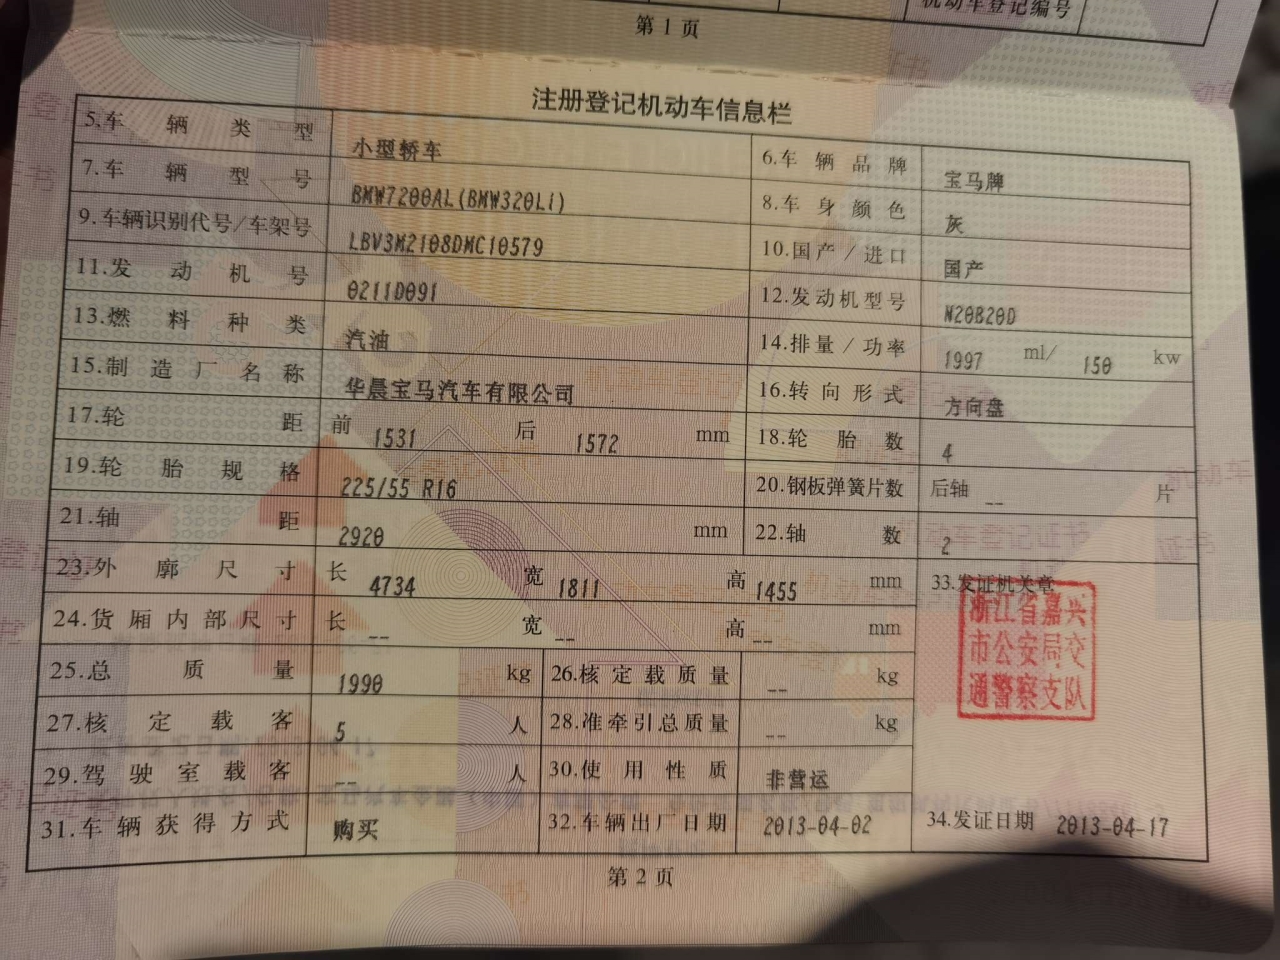 机动车登记编号
第1页
注册登记机动车信息栏
5.车辆类型 小型轿车 6.车辆品牌 宝马牌
7.车辆型号 BMW7200AL(BMW320Li) 8.车身颜色 灰
9.车辆识别代号/车架号 LBV3M2108DMC10579 10.国产/进口 国产
11.发动机号 0211D091 12.发动机型号 N20B20D
13.燃料种类 汽油 14.排量/功率 1997 ml/ 150 kw
15.制造厂名称 华晨宝马汽车有限公司 16.转向形式 方向盘
17.轮距 前 1531 后 1572 mm 18.轮胎数 4
19.轮胎规格 225/55 R16 20.钢板弹簧片数 后轴 -- 片
21.轴距 2920 mm 22.轴数 2
23.外廓尺寸 长 4734 宽 1811 高 1455 mm 33.发证机关章
24.货厢内部尺寸 长 -- 宽 -- 高 -- mm
浙江省嘉兴
市公安局交
通警察支队
25.总质量 1990 kg 26.核定载质量 -- kg
27.核定载客 5 人 28.准牵引总质量 -- kg
29.驾驶室载客 -- 人 30.使用性质 非营运
31.车辆获得方式 购买 32.车辆出厂日期 2013-04-02 34.发证日期 2013-04-17
第2页